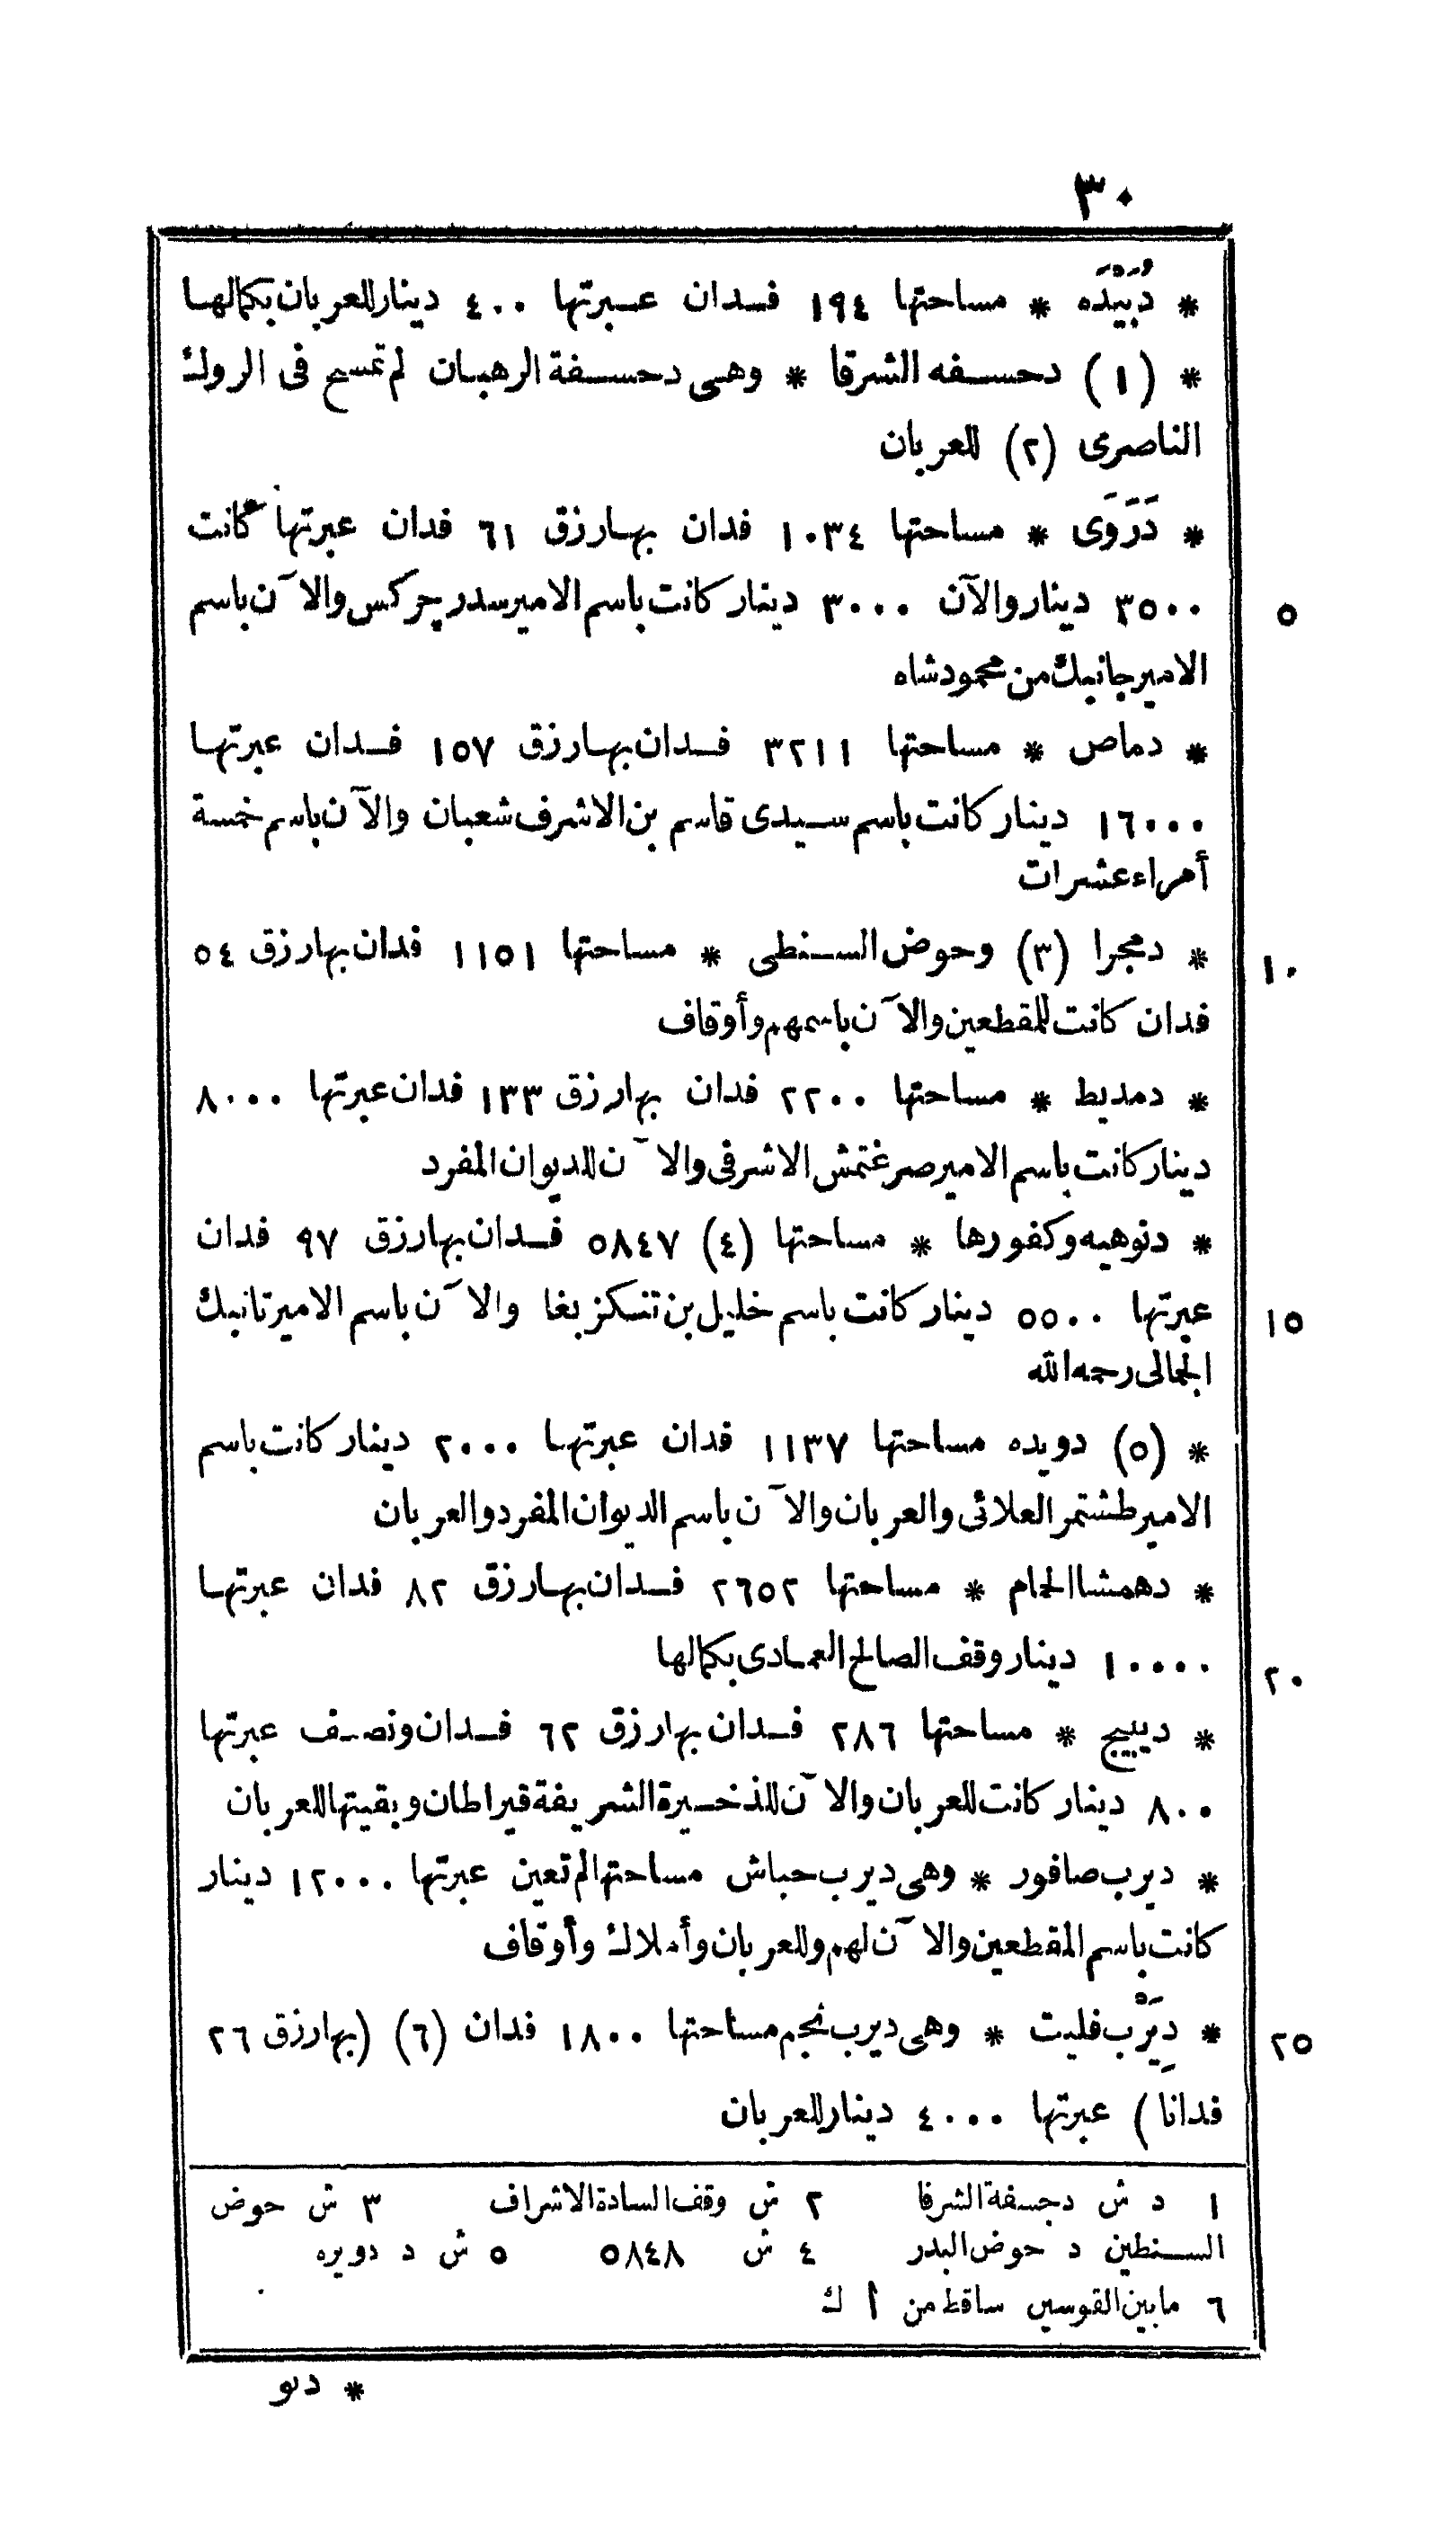 ٣٠
* دُبَيْدَه * مساحتها ١٩٤ فـدان عـبرتها ٤٠٠ دينار للعربان بكمالها
* (١) دحسفه الشرقا * وهى دحسفة الرهبان لم تمسح فى الروك
الناصرى (٢) للعربان
* دَرَوَى * مساحتها ١٠٣٤ فدان بها رزق ٦١ فدان عبرتها كانت
٣٥٠٠ دينار والآن ٣٠٠٠ دينار كانت باسم الامير سدر چركس والآن باسم ٥
الامير جانبك من محمود شاه
* دماص * مساحتها ٣٢١١ فدان بها رزق ١٥٧ فدان عبرتها
١٦٠٠٠ دينار كانت باسم سيدى قاسم بن الاشرف شعبان والآن باسم خمسة
أمراء عشرات
* دمجرا (٣) وحوض السنطى * مساحتها ١١٥١ فدان بها رزق ٥٤ ١٠
فدان كانت للمقطعين والآن باسمهم وأوقاف
* دمديط * مساحتها ٢٢٠٠ فدان بها رزق ١٣٣ فدان عبرتها ٨٠٠٠
دينار كانت باسم الامير صرغتمش الاشرفى والآن للديوان المفرد
* دنوهيه وكفورها * مساحتها (٤) ٥٨٤٧ فدان بها رزق ٩٧ فدان
عبرتها ٥٥٠٠ دينار كانت باسم خليل بن تنكز بغا والآن باسم الامير تانبك ١٥
الجمالى رحمه الله
* (٥) دويده مساحتها ١١٣٧ فدان عبرتها ٢٠٠٠ دينار كانت باسم
الامير طشتمر العلائى والعربان والآن باسم الديوان المفرد والعربان
* دهمشا الحمام * مساحتها ٢٦٥٢ فدان بها رزق ٨٢ فدان عبرتها
١٠٠٠٠ دينار وقف الصالح العمادى بكمالها ٢٠
* ديبيج * مساحتها ٢٨٦ فدان بها رزق ٦٢ فدان ونصف عبرتها
٨٠٠ دينار كانت للعربان والآن للذخيرة الشريفة قيراطان وبقيتها للعربان
* ديرب صافور * وهى ديرب حباش مساحتها لم تعين عبرتها ١٢٠٠٠ دينار
كانت باسم المقطعين والآن لهم وللعربان وأملاك وأوقاف
* دِيَرْب فليت * وهى ديرب نجم مساحتها ١٨٠٠ فدان (٦) (بها رزق ٢٦ ٢٥
فدانا) عبرتها ٤٠٠٠ دينار للعربان
١ د ش دجسفة الشرفا ٢ ش وقف السادة الاشراف ٣ ش حوض
السنطين د حوض البدر ٤ ش ٥٨٤٨ ٥ ش د دويره
٦ ما بين القوسين ساقط من أ ك
* دىو